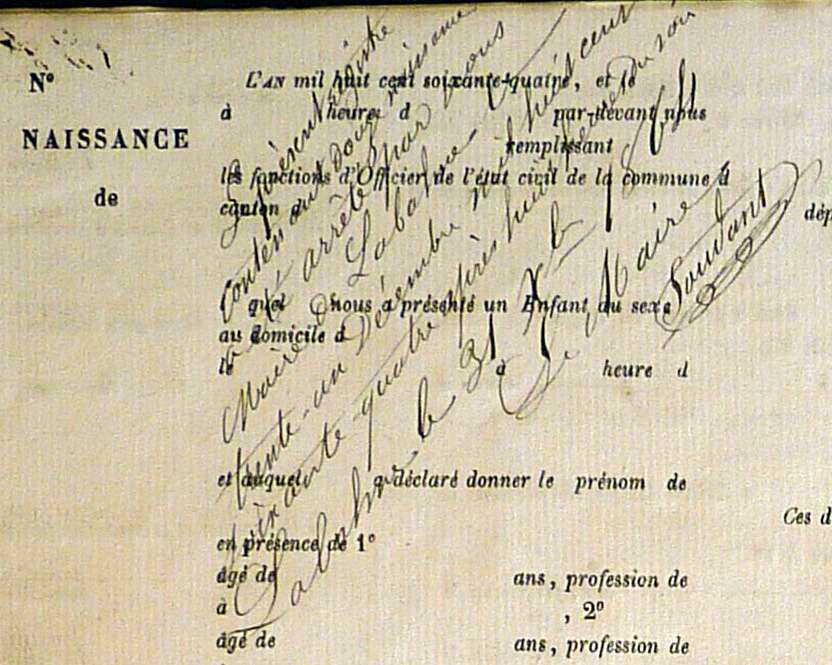 N°
NAISSANCE
de
L'AN mil huit cent soixante-quatre, et le
à heure d par-devant nous
remplissant
les fonctions d'Officier de l'état civil de la commune d
canton d dép
quel nous a présenté un Enfant du sexe
au domicile d
le à heure d
et auquel a déclaré donner le prénom de
Ces d
en présence de 1°
âgé de ans, profession de
à , 2°
âgé de ans, profession de
Le présent registre
contenant douze naissances
a été arrêté par nous
Maire de Labalme le
trente-un Décembre mil huit cent
soixante-quatre après huit heures du soir
Labalme le 31 Xbre 1864
Le Maire
Soudant